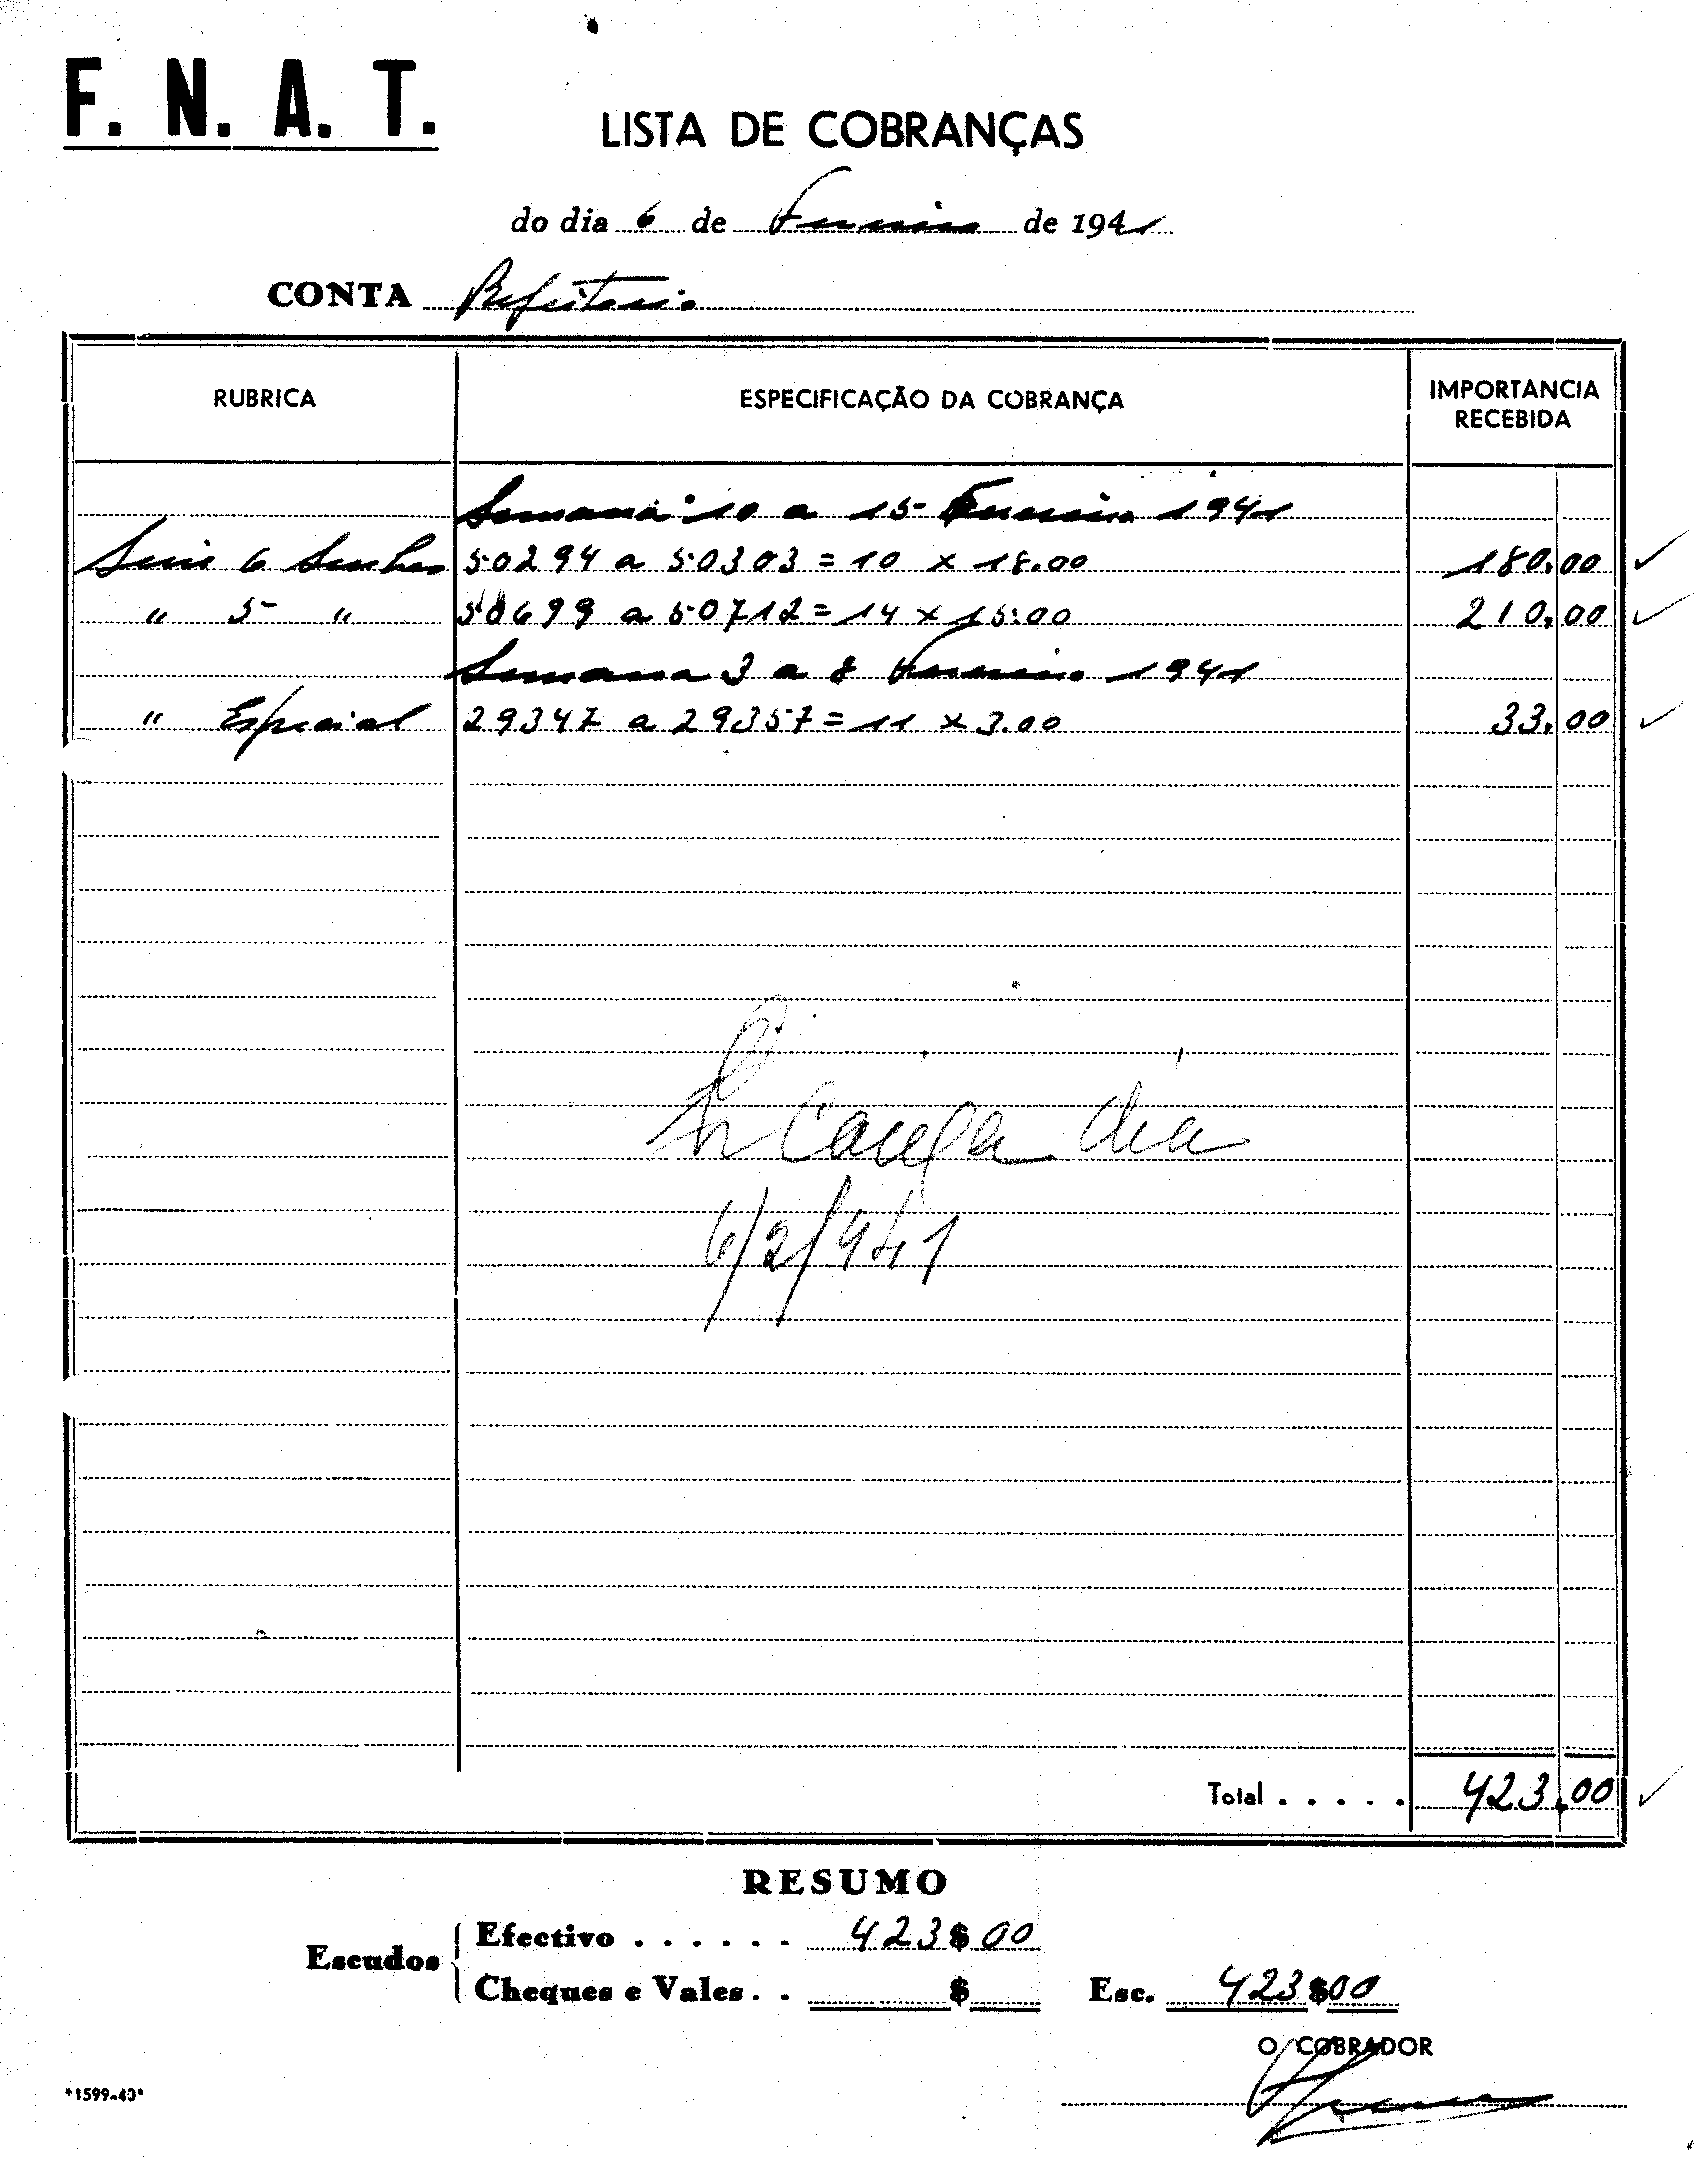 F. N. A. T.
LISTA DE COBRANÇAS
do dia 6 de Fevereiro de 1941
CONTA Refeitorio
RUBRICA ESPECIFICAÇÃO DA COBRANÇA IMPORTANCIA RECEBIDA
Semana 10 a 15 Fevereiro 1941
Serie 6 Senhas 50294 a 50303 = 10 x 18.00 180.00 ✓
" 5 " 50699 a 50712 = 14 x 15.00 210.00 ✓
Semana 3 a 8 Fevereiro 1941
" Especial 29347 a 29357 = 11 x 3.00 33.00 ✓
Caixa dia
6/2/941
Total . . . . . 423.00 ✓
RESUMO
Escudos Efectivo . . . . . . 423$00
Cheques e Vales . . $ Esc. 423$00
O COBRADOR
*1599-40*